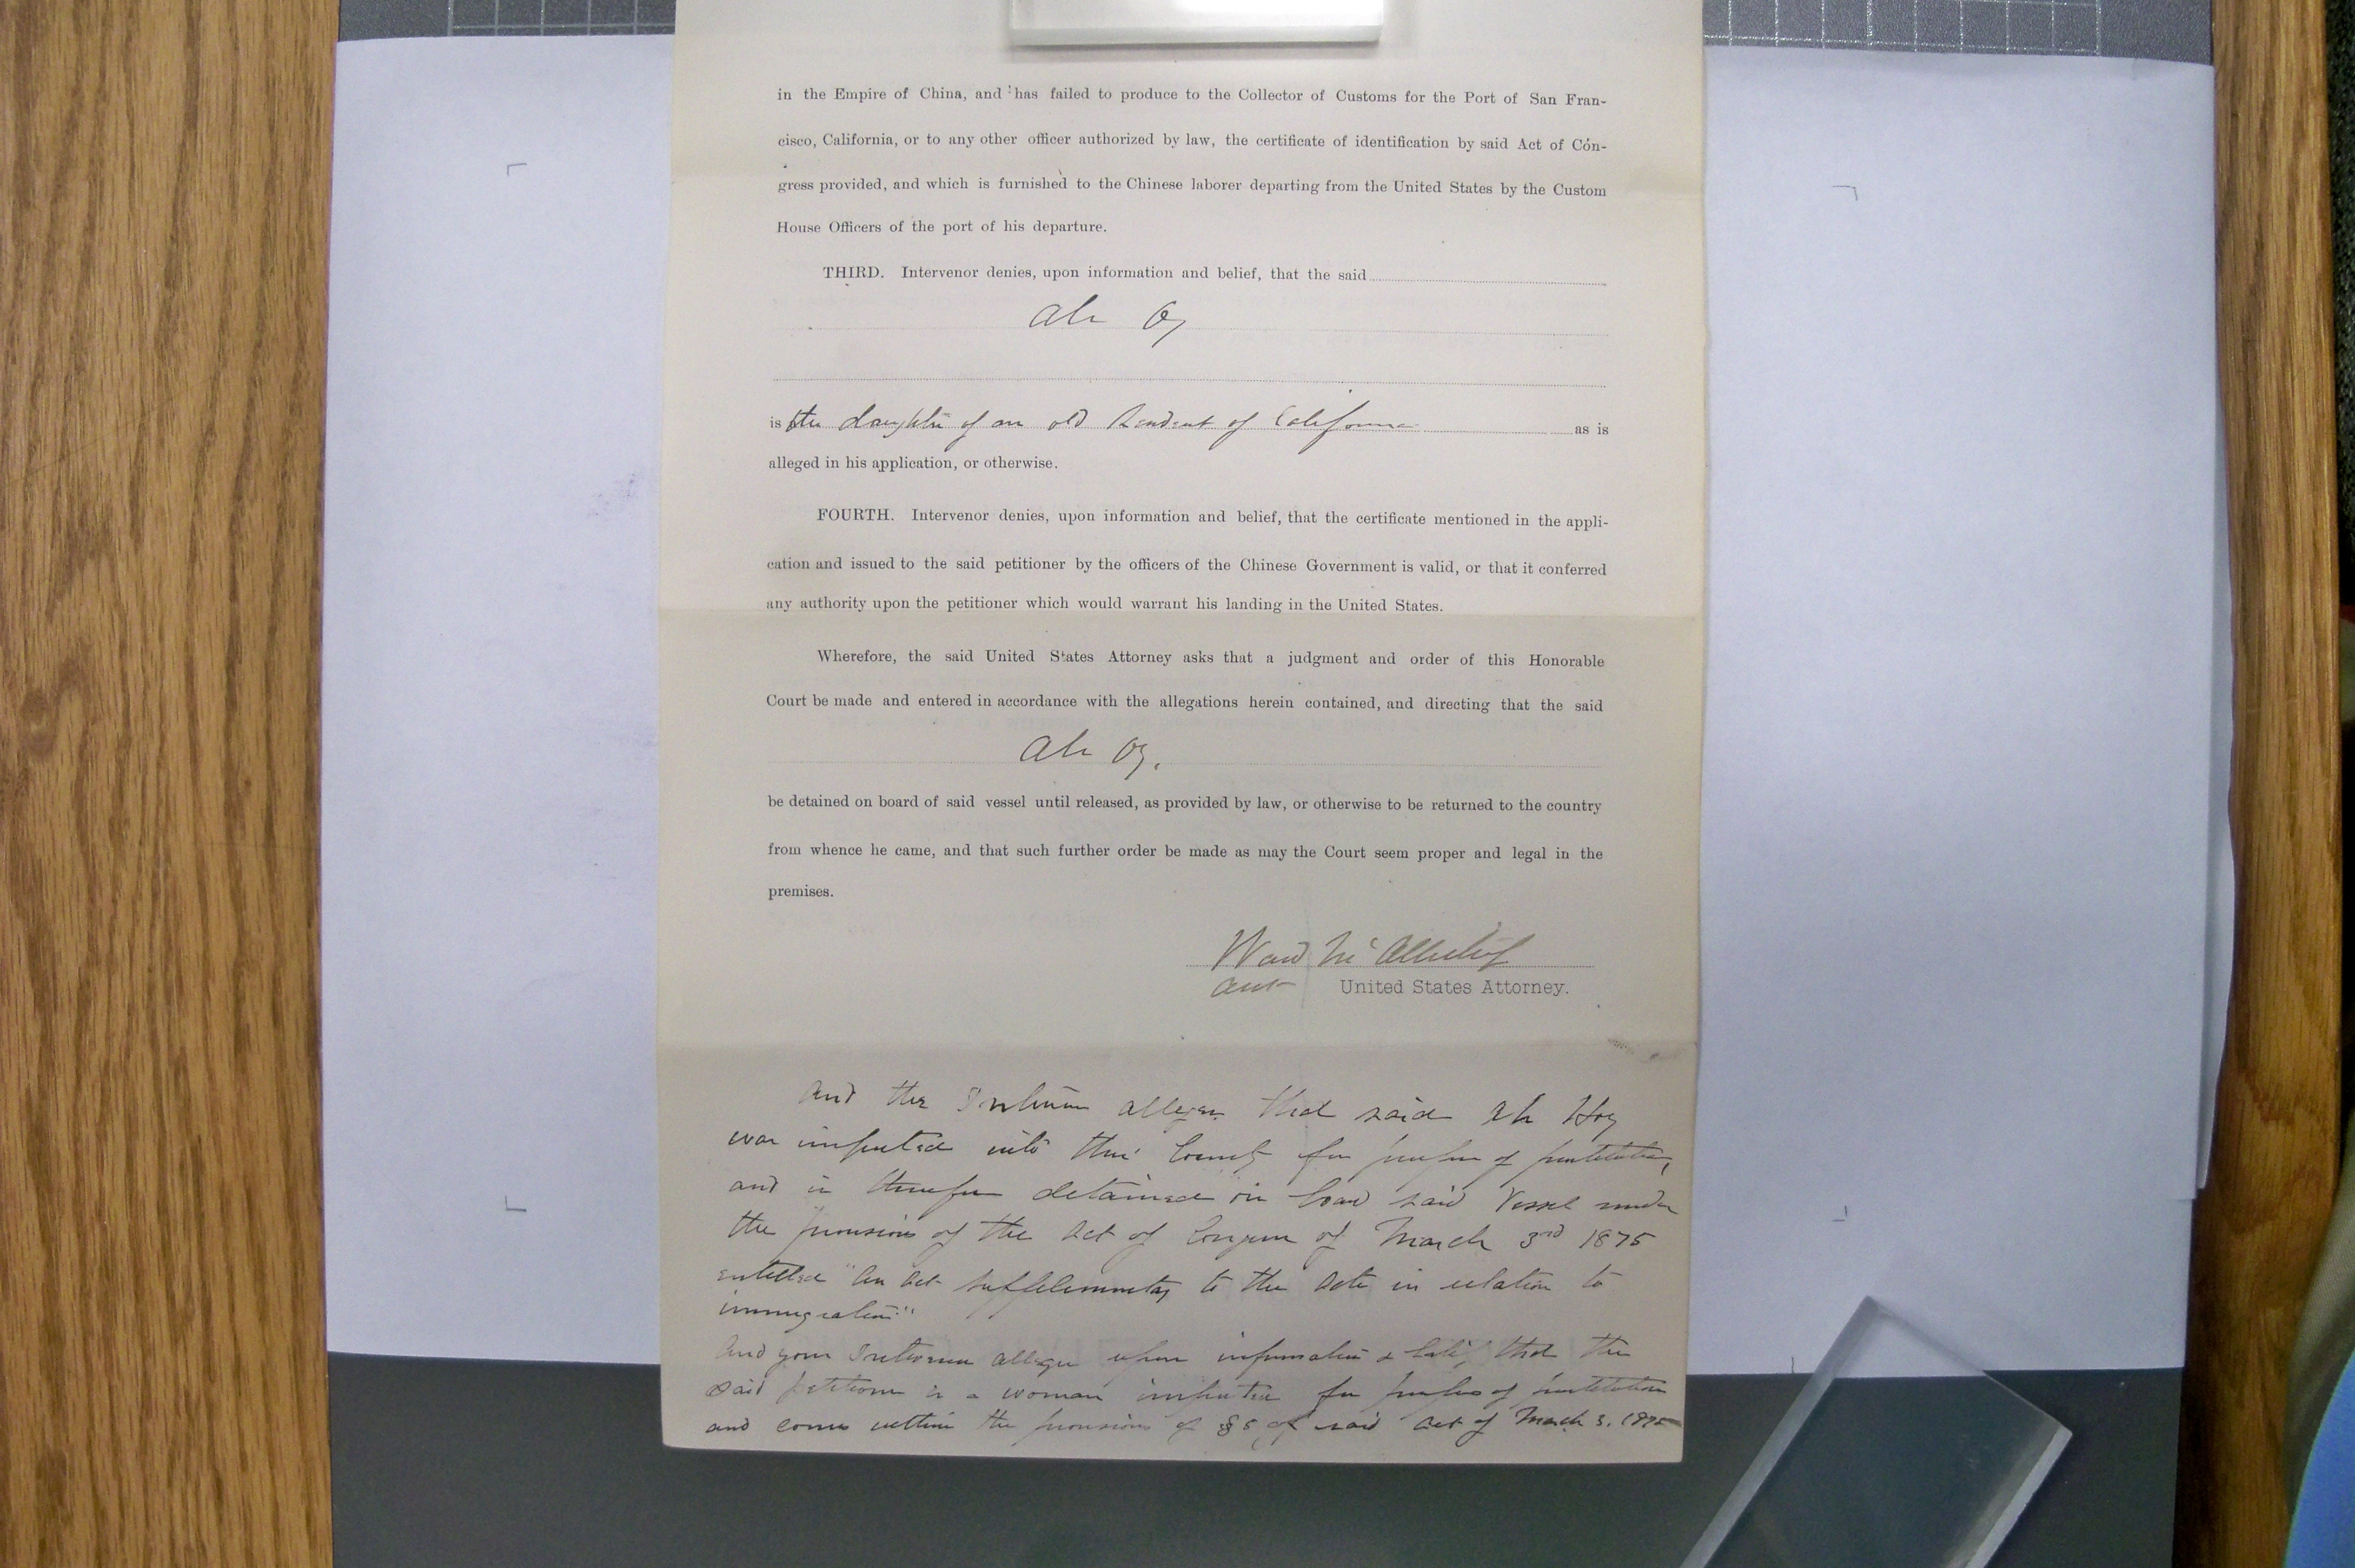 in the Empire of China, and has failed to produce to the Collector of Customs for the Port of San Fran-
cisco, California, or to any other officer authorized by law, the certificate of identification by said Act of Con-
gress provided, and which is furnished to the Chinese laborer departing from the United States by the Custom
House Officers of the port of his departure.
THIRD. Intervenor denies, upon information and belief, that the said
Ah Oy
is the daughter of an old Resident of California as is
alleged in his application, or otherwise.
FOURTH. Intervenor denies, upon information and belief, that the certificate mentioned in the appli-
cation and issued to the said petitioner by the officers of the Chinese Government is valid, or that it conferred
any authority upon the petitioner which would warrant his landing in the United States.
Wherefore, the said United States Attorney asks that a judgment and order of this Honorable
Court be made and entered in accordance with the allegations herein contained, and directing that the said
Ah Oy.
be detained on board of said vessel until released, as provided by law, or otherwise to be returned to the country
from whence he came, and that such further order be made as may the Court seem proper and legal in the
premises.
Ward McAllister Jr
Asst United States Attorney.
And the Intervenor alleges that said Ah Hoy
was imported into this Country for purposes of prostitution,
and is therefore detained on board said Vessel under
the provisions of the Act of Congress of March 3rd 1875
entitled "An Act supplementary to the Acts in relation to
immigration"
And your Intervenor alleges upon information & belief that the
said petitioner is a woman imported for purposes of prostitution
and comes within the provisions of § 5 of said Act of March 3, 1875